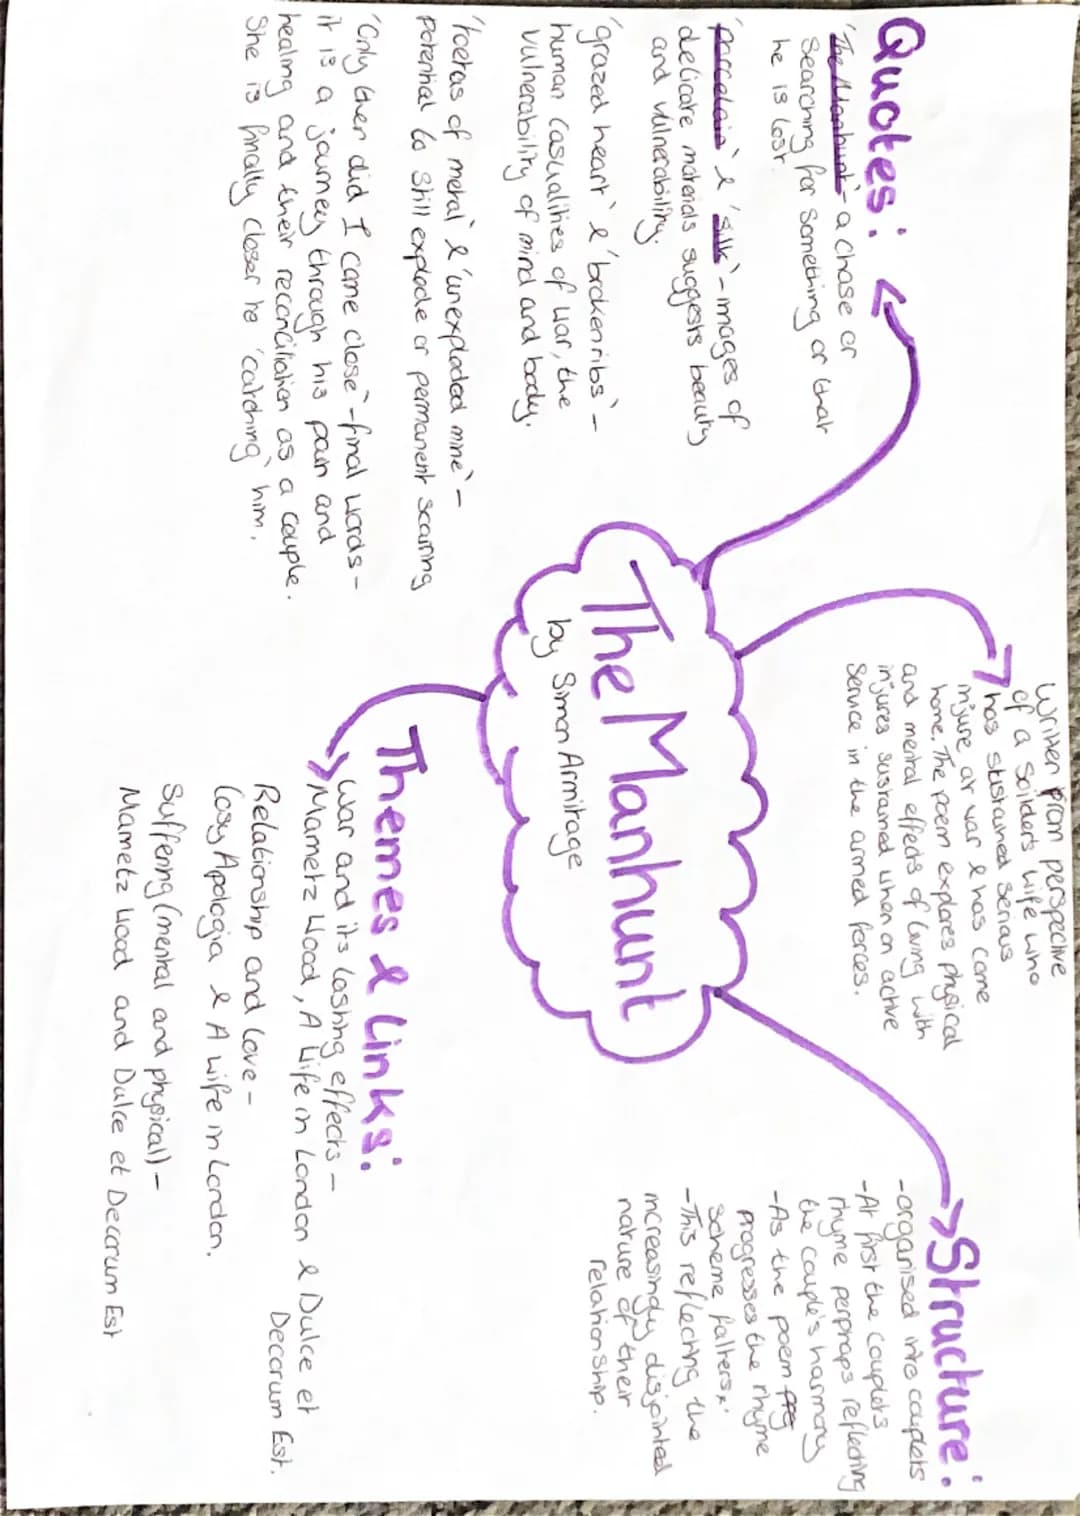 Quotes:
'The Manhunt' - a chase or
searching for something or that
he is lost.
'porcelain' & 'silk' - images of
delicate materials suggests beauty
and vulnerability.
'grazed heart' & 'broken ribs' -
human casualities of war, the
vulnerability of mind and body.
'foetas of metal' & 'unexploded mine' -
potential to still explode or permanent scaring
'Only then did I come close' - final words -
it is a journey through his pain and
healing and their reconciliation as a couple.
She is finally closer to 'catching' him.
Written from perspective
of a soilders wife who
has sustained serious
injure at war & has come
home. The poem explores physical
and mental effects of living with
injures sustained when on active
service in the armed forces.
The Manhunt
by Simon Armitage
Structure:
- organised into couplets
- At first the couplets
rhyme perphaps reflecting
the couple's harmony
- As the poem prog
progresses the rhyme
scheme falters
- This reflecting the
increasingly disjointed
nature of their
relationship.
Themes & Links:
War and its lasting effects -
Mametz Wood, A Wife in London & Dulce et
Decorum Est.
Relationship and love -
Cosy Apologia & A wife in London.
Suffering (mental and physical) -
Mametz Wood and Dulce et Decorum Est